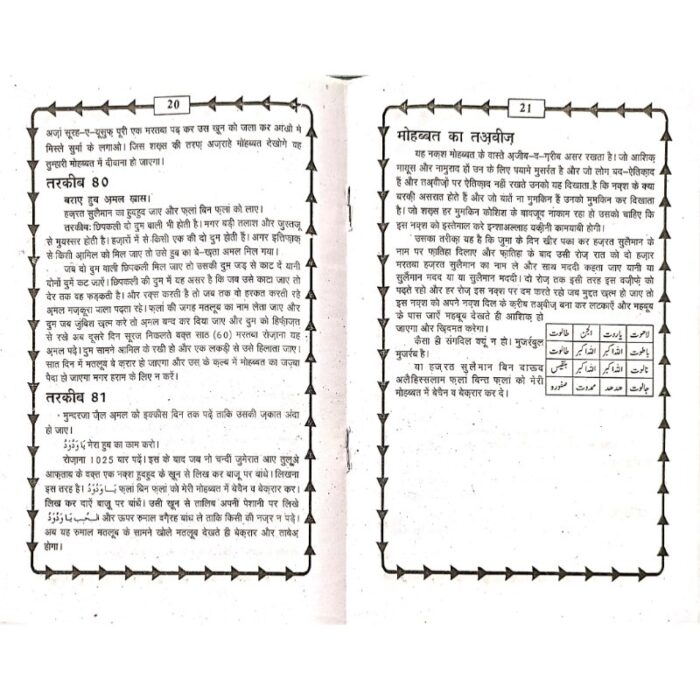 20
अज़ां सूरह-ए-यूसुफ़ पूरी एक मरतबा पढ़ कर उस खून को जला कर आंखों में
मिस्ले सुर्मा के लगाओ। जिस शख़्स की तरफ़ अज़राहे मोहब्बत देखोगे वह
तुम्हारी मोहब्बत में दीवाना हो जाएगा।
तरकीब 80
बराए हुब अ़मल ख़ास।
हज़रत सुलैमान का हुदहुद जाए और फ़लां बिन फ़लां को लाए।
तरकीबः छिपकली दो दुम बाली भी होती है। मगर बड़ी तलाश और जुस्तजू
से मुयस्सर होती है। हज़ारों में से किसी एक की दो दुम होती हैं। अगर इत्तिफ़ाक़
से किसी आ़मिल को मिल जाए तो उसे हुब का बे-ख़ता अ़मल मिल गया।
जब दो दुम वाली छिपकली मिल जाए तो उसकी दुम जड़ से काट दे यानी
दोनों दुमें काट जाएं। छिपकली की दुम में यह असर है कि जब उसे काटा जाए तो
देर तक वह फड़कती है। और रक़्स करती है तो जब तक वो हरकत करती रहे
अ़मल मज़्कूरा पढ़ता रहे। फ़लां की जगह मतलूब का नाम लेता जाए और
दुम जब जुंबिश खत्म करे तो अ़मल बन्द कर दिया जाए और दुम को हिफ़ाज़त
से रखे अब दूसरे दिन सूरज निकलते वक़्त साठ (60) मरतबा रोज़ाना यह
अ़मल पढ़े। दुम सामने आ़मिल के रखी हो और एक लकड़ी से उसे हिलाता जाए।
सात दिन में मतलूब बे क़रार हो जाएगा और उस के क़ल्ब में मोहब्बत का जज़्बा
पैदा हो जाएगा मगर हराम के लिए न करें।
तरकीब 81
मुन्दरजा ज़ैल अ़मल को इक्कीस दिन तक पढ़ें ताकि उसकी ज़कात अदा
हो जाए।
يَاوَدُوْدُ मेरा हुब का काम करो।
रोज़ाना 1025 बार पढ़ें। इस के बाद जब नो चन्दी जुमेरात आए तुलूअे
आफ़ताब के वक़्त एक नक़्श हुदहुद के खून से लिख कर बाजू पर बांधे। लिखना
इस तरह है। يَاوَدُوْدُ फ़लां बिन फ़लां को मेरी मोहब्बत में बेचैन व बेक़रार कर।
लिख कर दाएं बाजू पर बांधें। उसी खून से तालिब अपनी पेशानी पर लिखे
يَاوَدُوْدُ और ऊपर रुमाल वग़ैरह बांध ले ताकि किसी की नज़र न पड़े।
अब यह रुमाल मतलूब के सामने खोले मतलूब देखते ही बेक़रार और ताबेअ़
होगा।
21
मोहब्बत का तअ़वीज़
यह नक़्श मोहब्बत के वास्ते अ़जीब-व-ग़रीब असर रखता है। जो आशिक़
मायूस और नामुराद हों उन के लिए पयामे मुसर्रत है और जो लोग बद-ऐतिक़ाद
हैं और तअ़वीज़ों पर ऐतिक़ाद नहीं रखते उनको यह दिखाता है कि नक़्श के क्या
बरक़ी असरात होते हैं और जो बातें ना गुमकिन हैं उनको मुमकिन कर दिखाता
है। जो शख़्स हर मुमकिन कोशिश के बावजूद नाकाम रहा हो उसको चाहिए कि
इस नक़्श को इस्तेमाल करे इन्शाअल्लाह यक़ीनी कामयाबी होगी।
उसका तरीक़ा यह है कि जुमा के दिन खीर पका कर हज़रत सुलैमान के
नाम पर फ़ातिहा दिलाए और फ़ातिहा के बाद उसी रोज़ रात को दो हज़ार
मरतबा हज़रत सुलैमान का नाम ले और साथ मददी कहता जाए यानी या
सुलैमान मदद या या सुलैमान मददी। दो रोज़ तक इसी तरह इस वज़ीफ़े को
पढ़ते रहो और हर रोज़ इस नक़्श पर दम करते रहो जब मुद्दत खत्म हो जाए तो
इस नक़्श को अपने नक़्श दिल के क़रीब तअ़वीज़ बना कर लटकाएं और महबूब
के पास जाएं महबूब देखते ही आशिक़ हो
जाएगा और ख़िदमत करेगा।
कैसा ही संगदिल क्यूं न हो। मुजर्रबुल
मुजर्रब है।
या हज़रत सुलैमान बिन दाऊद
अलैहिस्सलाम फ़लां बिन्त फ़लां को मेरी
मोहब्बत में बेचैन व बेक़रार कर दे।
لاهوت ياروت طالوت
ياطوت اللہ اکبر اللہ اکبر طالوت
نالوت اللہ اکبر اللہ اکبر بلقيس
جالوت هدهد صفوره